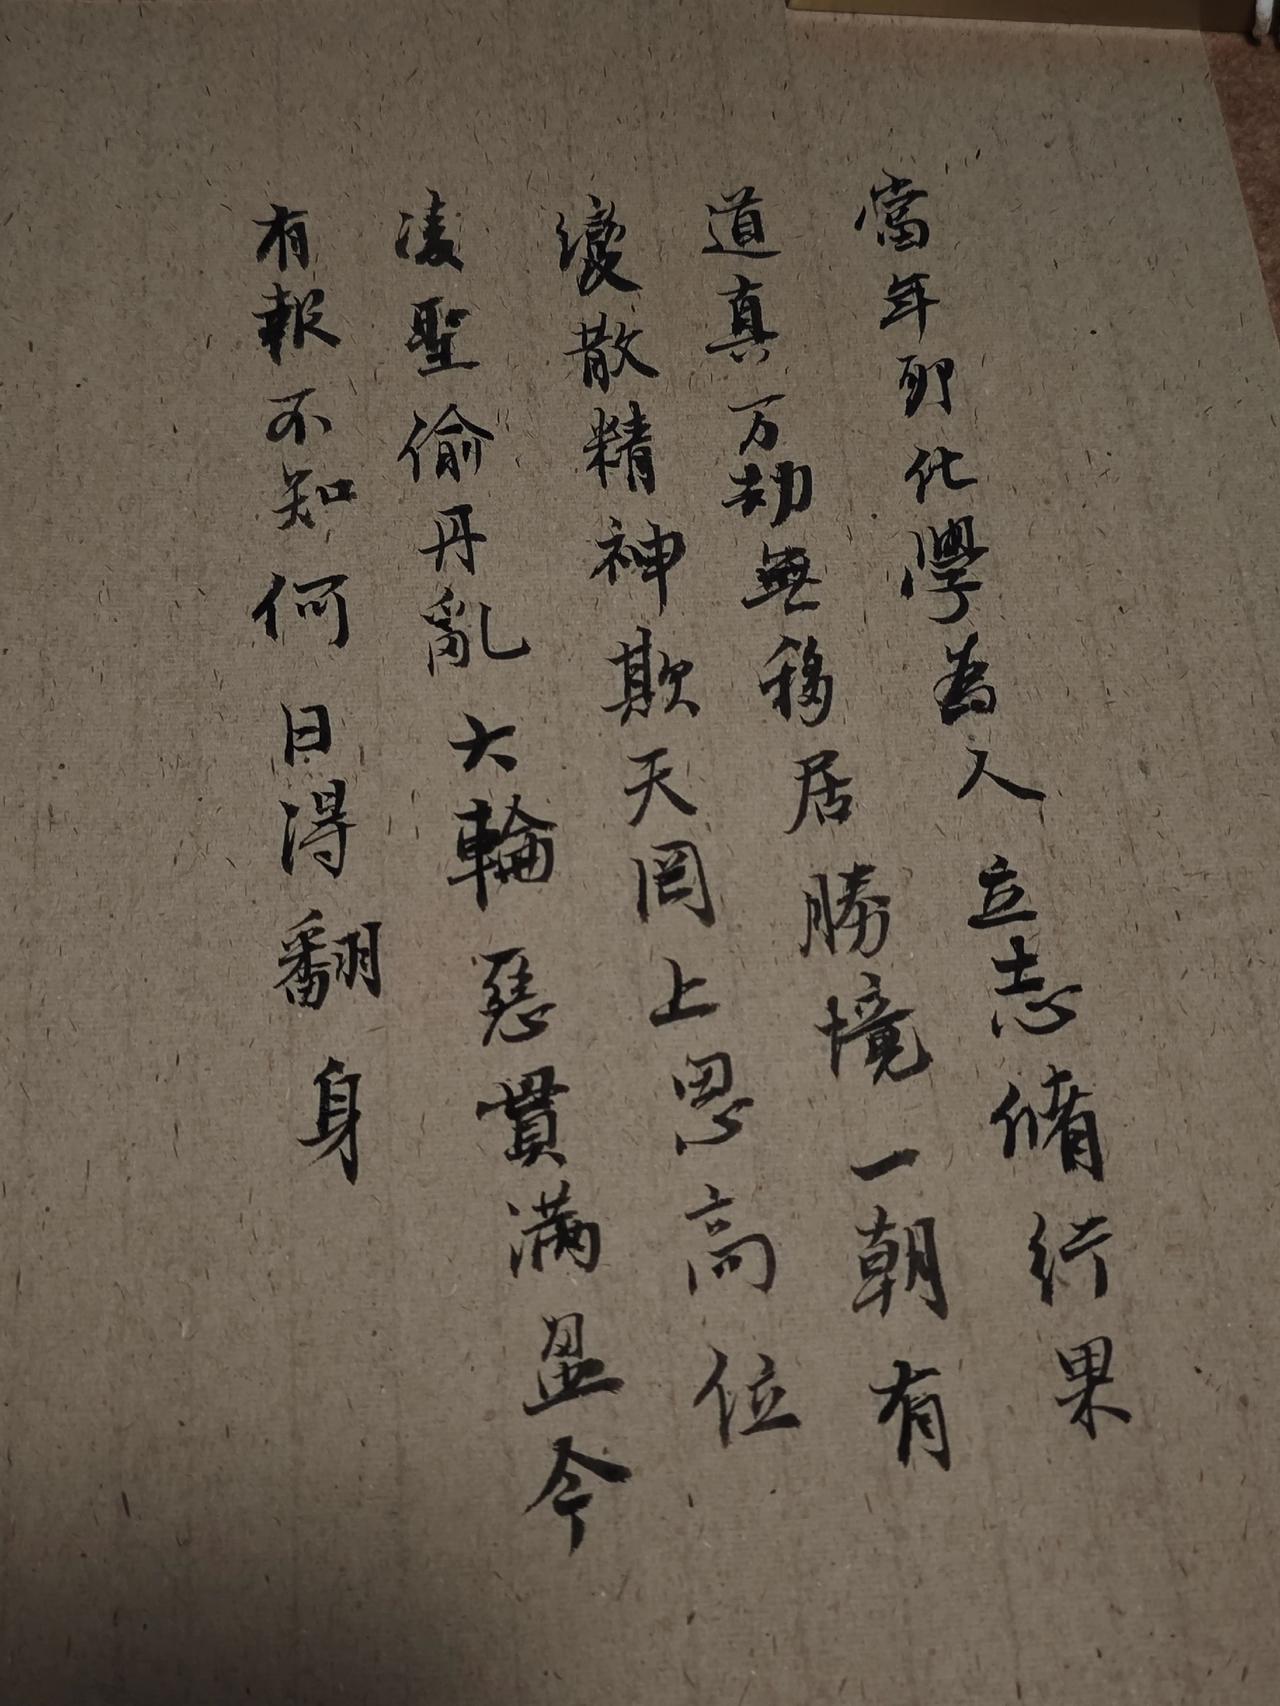 當年卵化學為人立志脩行果
道真万劫無移居勝境一朝有
變散精神欺天罔上思高位
凌聖偷丹亂大輪惡貫滿盈今
有報不知何日得翻身